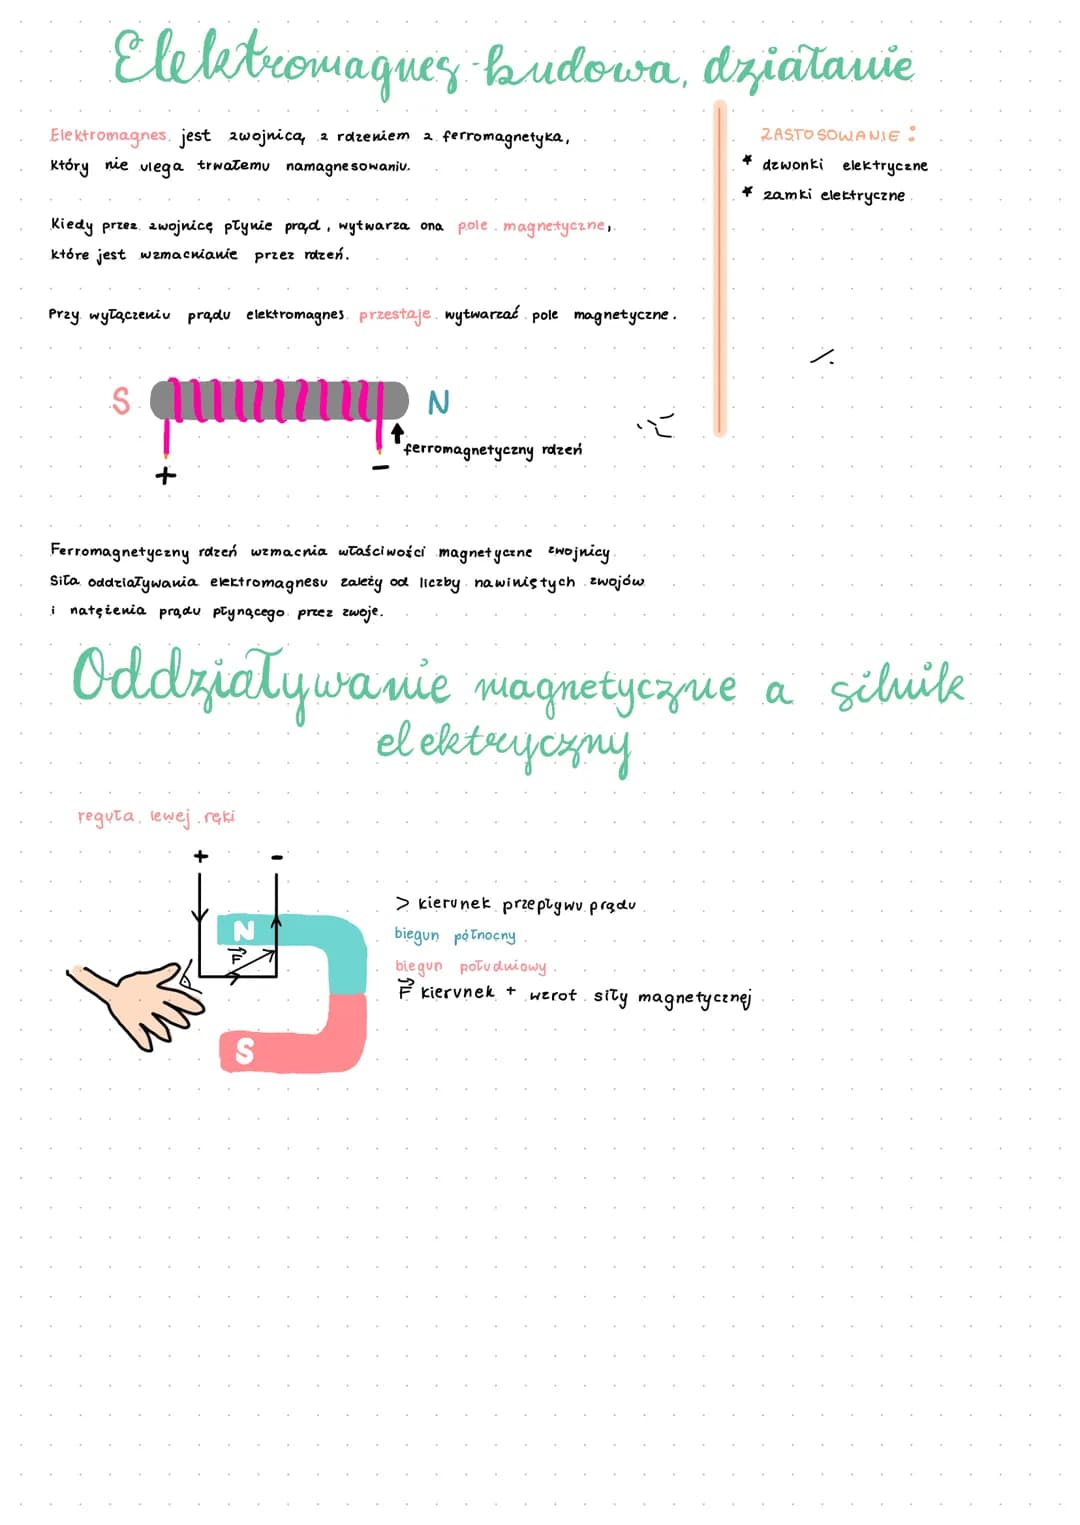 Elektromagnes - budowa, działanie
Elektromagnes jest zwojnicą z rdzeniem z ferromagnetyka,
który nie ulega trwałemu namagnesowaniu.
Kiedy przez zwojnicę płynie prąd, wytwarza ona pole magnetyczne,
które jest wzmacnianie przez rdzeń.
Przy wyłączeniu prądu elektromagnes przestaje wytwarzać pole magnetyczne.
ZASTOSOWANIE:
* dzwonki elektryczne
* zamki elektryczne
S N
ferromagnetyczny rdzeń
+ -
Ferromagnetyczny rdzeń wzmacnia właściwości magnetyczne zwojnicy
Siła oddziaływania elektromagnesu zależy od liczby nawiniętych zwojów
i natężenia prądu płynącego przez zwoje.
Oddziaływanie magnetyczne a silnik
elektryczny
reguła lewej ręki
+ -
N
F
S
> kierunek przepływu prądu
biegun północny
biegun południowy
F kierunek + wzrot siły magnetycznej